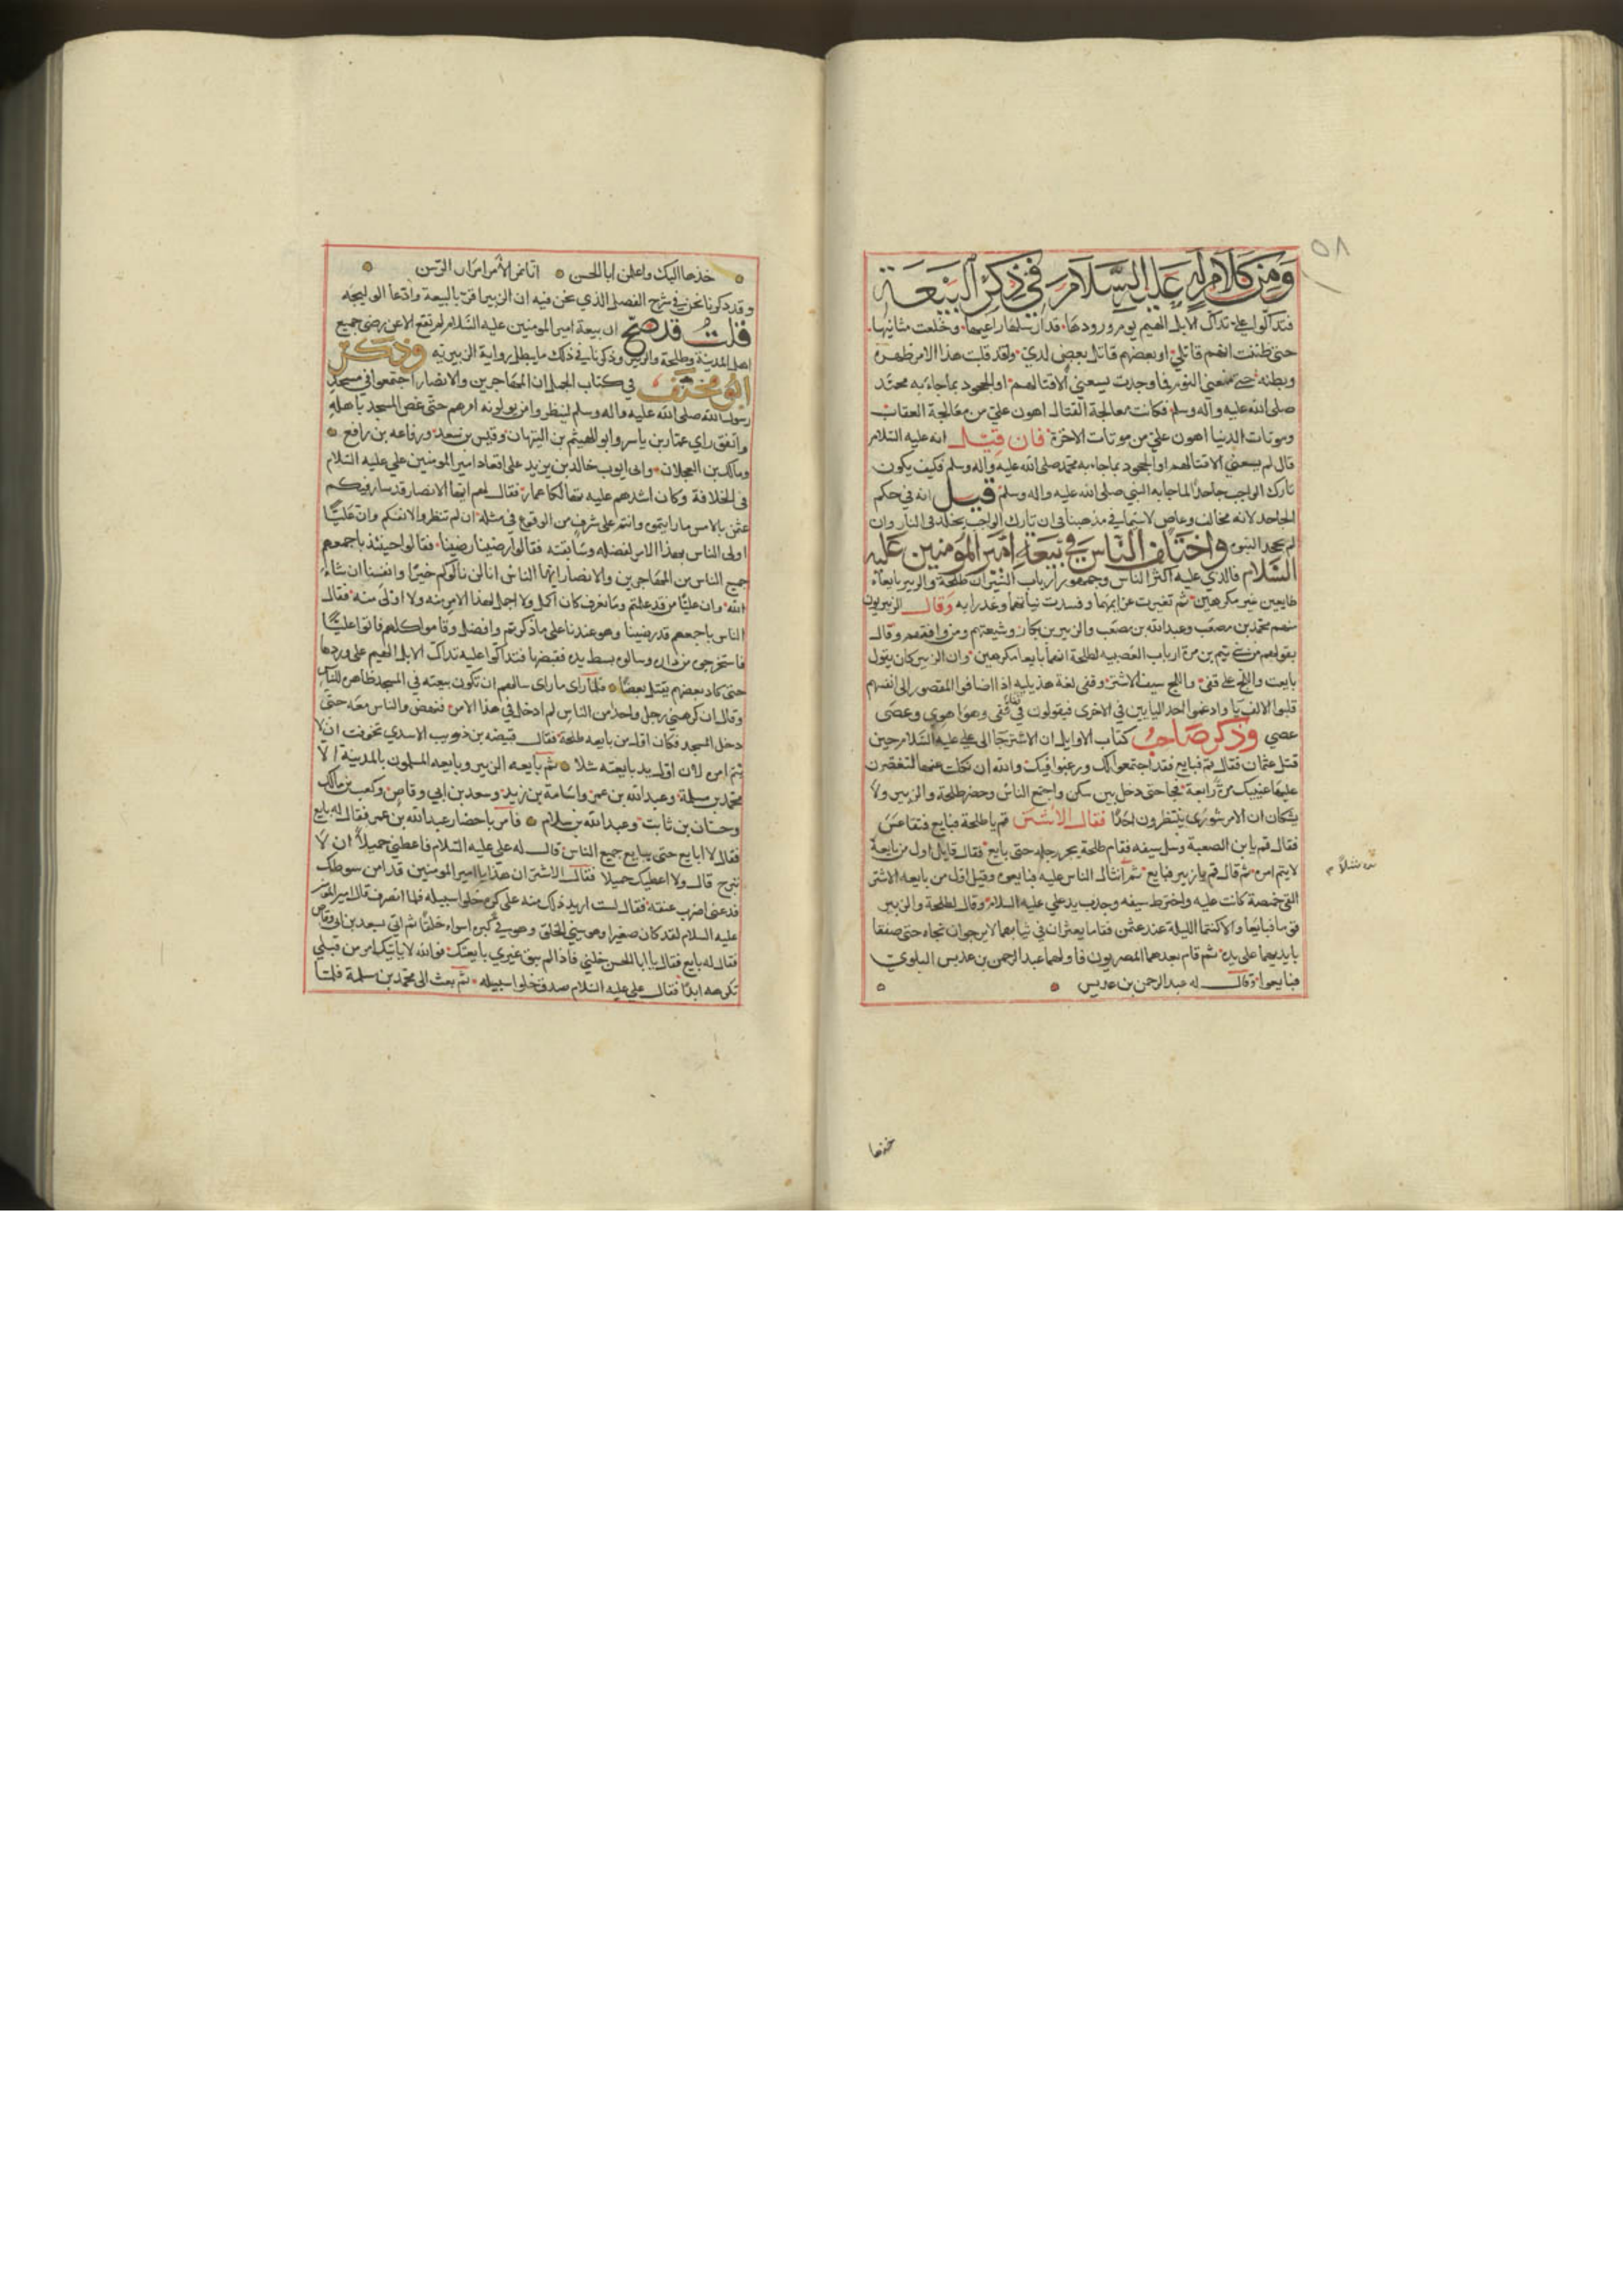 ٥٨
ومن كلام له عليه السلام في ذكر البيعة
فتداكوا علي تداك الابل الهيم يوم ورودها قد ارسلها راعيها وخلعت مثانيها
حتى ظننت انهم قاتلي او بعضهم قاتل بعض لدي ولقد قلبت هذا الامر ظهره
وبطنه حتى منعني النوم فما وجدت يسعني الا قتالهم او الجحود بما جاء به محمد
صلى الله عليه واله وسلم فكانت معالجة القتال اهون علي من معالجة العقاب
وموتات الدنيا اهون علي من موتات الاخرة فان قيل انه عليه السلام
قال لم يسعني الا قتالهم او الجحود بما جاء به محمد صلى الله عليه واله وسلم فكيف يكون
تارك الواجب جاحدا لما جا به النبي صلى الله عليه واله وسلم قيل انه في حكم
الجاحد لانه مخالف وعاص لا سيما في مذهبنا في ان تارك الواجب يخلد في النار وان
لم يجحد النبوة واختلف الناس في بيعة امير المؤمنين عليه
السلام فالذي عليه اكثر الناس وجمهور ارباب السير ان طلحة والزبير بايعاه
طايعين غير مكرهين ثم تغيرت عزايمهما وفسدت نياتهما وغدرا به وقال الزبيريون
منهم محمد بن مصعب وعبد الله بن مصعب والزبير بن بكار وشيعتهم ومن وافقهم وقال
بقولهم من بني تيم بن مرة ارباب العصبيه لطلحة انهما بايعا مكرهين وان الزبير كان يقول
بايعت واللج على قفي واللج سيف الاشتر وقفي لغة هذيليه اذا اضافوا المقصور الى انفسهم
قلبوا الالف يا وادغموا احد اليايين في الاخرى فيقولون في قفا قفي وهوا هوي وعصى
عصي وذكر صاحب كتاب الاوايل ان الاشتر جا الى علي عليه السلام حين
قتل عثمان فقال قم فبايع فقد اجتمعوا لك ورغبوا فيك والله ان نكلت عنها لتعصرن
عليها عينيك مرة رابعة فجا حتى دخل بير سكن واجتمع الناس وحضر طلحة والزبير ولا
يشكان ان الامر شورى ينتظرون احدا فقال الاشتر قم يا طلحة فبايع فتقاعس
فقال قم يا بن الصعبة وسل سيفه فقام طلحة يجر رجله حتى بايع فقال قايل اول من بايعه
لا يتم امره ثم قال قم يا زبير فبايع ثم انثال الناس عليه فبايعوه وقيل اول من بايعه الاشتر
القى خمصة كانت عليه واخترط سيفه وجذب يد علي عليه السلام وقال لطلحة والزبير
قوما فبايعا والا كنتما الليلة عند عثمن فقاما يعثران في ثيابهما لا يرجوان نجاه حتى صفقا
بايديهما على يده ثم قام بعدهما المصريون فاولهما عبد الرحمن بن عديس البلوي
فبايعوا وقال له عبد الرحمن بن عديس
خذها
خذها اليك واعلمن ابا الحسن انا نمر الامر امرار الرسن
وقد ذكرنا نحن في شرح الفصل الذي نحن فيه ان الزبير اقر بالبيعة وادعا الوليجه
قلت قد صح ان بيعة امير المومنين عليه السلام لم تقع الا عن رضى جميع
اهل المدينة وطلحة والزبير وذكرنا في ذلك ما يبطل رواية الزبيريه وذكر
ابو مخنف في كتاب الجمل ان المهاجرين والانصار اجتمعوا في مسجد
رسول الله صلى الله عليه واله وسلم لينظروا من يولونه امرهم حتى غص المسجد باهله
واتفق راي عمار بن ياسر وابو الهيثم بن التيهان وقيس بن سعد ورفاعه بن رافع
ومالك بن العجلان وابي ايوب خالد بن يزيد على اقعاد امير المومنين علي عليه السلام
في الخلافة وكان اشدهم عليه تهالكا عمار فقال لهم ايها الانصار قد سار فيكم
عثمن بالامس ما رايتموه وانتم على شرف من الوقوع في مثله ان لم تنظروا لانفسكم وان عليا
اولى الناس بهذا الامر لفضله وسابقته فقالوا رضينا رضينا فقالوا حينئذ باجمعهم
جميع الناس من المهاجرين والانصار ايها الناس انا لن نالوكم خيرا وانفسنا ان شاء
الله وان عليا من قد علمتم وما نعرف كان اكمل ولا اجمل لهذا الامر منه ولا اولى منه فقال
الناس باجمعهم قد رضينا وهو عندنا على ما ذكرتم وافضل وقاموا كلهم فاتوا عليا
فاستخرجوه من داره وسالوه بسط يده فقبضها فتداكوا عليه تداك الابل الهيم على وردها
حتى كاد بعضهم يقتل بعضا فلما راى ما راى سالهم ان تكون بيعته في المسجد ظاهرة للناس
وقال ان كرهني رجل واحد من الناس لم ادخل في هذا الامر فنهض والناس معه حتى
دخل المسجد فكان اول من بايعه طلحة فقال قبيصه بن ذويب الاسدي تخوفت ان لا
يتم امره لان اول يد بايعته شلا ثم بايعه الزبير وبايعه المسلمون بالمدينة الا
محمد بن مسلمة وعبد الله بن عمر واسامة بن زيد وسعد بن ابي وقاص وكعب بن مالك
وحسان بن ثابت وعبد الله بن سلام فامر باحضار عبد الله بن عمر فقال له بايع
فقال لا ابايع حتى يبايع جميع الناس قال له علي عليه السلام فاعطني حميلا ان لا
تبرح قال ولا اعطيك حميلا فقال الاشتر ان هذا يا امير المومنين قد امن سوطك
فدعني اضرب عنقه فقال لست اريد ذلك منه على كره خلوا سبيله فلما انصرف قال امير المومنين
عليه السلام لقد كان صغيرا وهو سيئ الخلق وهو في كبره اسواء خلقا ثم اتي بسعد بن ابي وقاص
فقال له بايع فقال يا ابا الحسن خلني فاذا لم يبق غيري بايعتك فوالله لا ياتيك امر من قبلي
تكرهه ابدا فقال علي عليه السلام صدق خلوا سبيله ثم بعث الى محمد بن سلمة فلما